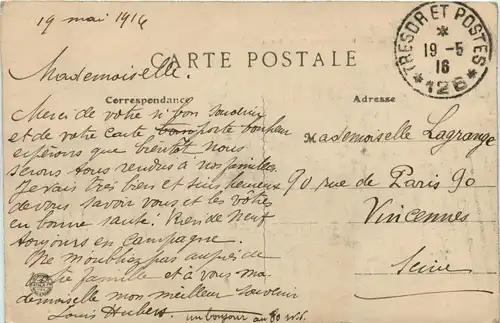 19 mai 1916
TRESOR ET POSTES
19-5
16
* 126 *
CARTE POSTALE
Correspondance
Adresse
Mademoiselle.
Merci de votre si bon souvenir
et de votre carte porte bonheur
espérons que bientôt nous
serons tous rendus à nos familles.
Je vais très bien et suis heureux
de vous savoir vous et les vôtres
en bonne santé! Rien de neuf
toujours en campagne.
Ne m'oubliez pas auprès de
famille et à vous ma
demoiselle mon meilleur souvenir
Louis Hubert
un bonjour au 80
Mademoiselle Lagrange
90 rue de Paris 90
Vincennes
Seine